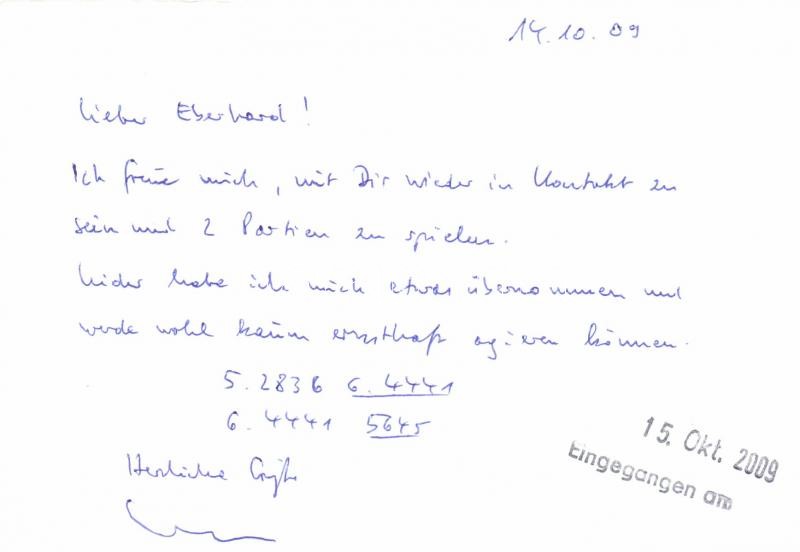 14.10.09
Lieber Eberhard!
Ich freue mich, mit Dir wieder in Kontakt zu
sein und 2 Partien zu spielen.
Leider habe ich mich etwas übernommen und
werde wohl kaum ernsthaft agieren können.
5.2836 6.4441
6.4441 5645
Herzliche Grüße
15. Okt. 2009
Eingegangen am